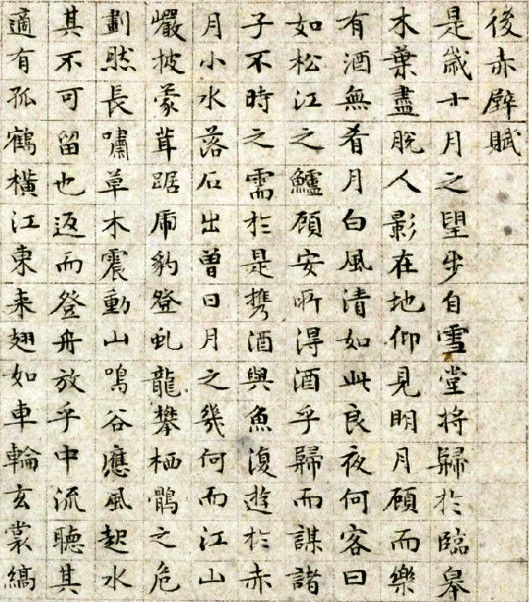 後赤壁賦
是歲十月之望步自雪堂將歸於臨皋
木葉盡脫人影在地仰見明月顧而樂
有酒無肴月白風清如此良夜何客曰
如松江之鱸顧安所得酒乎歸而謀諸
子不時之需於是携酒與魚復遊於赤
月小水落石出曾日月之幾何而江山
巖披蒙茸踞虎豹登虬龍攀栖鶻之危
劃然長嘯草木震動山鳴谷應風起水
其不可留也返而登舟放乎中流聽其
適有孤鶴橫江東来翅如車輪玄裳縞